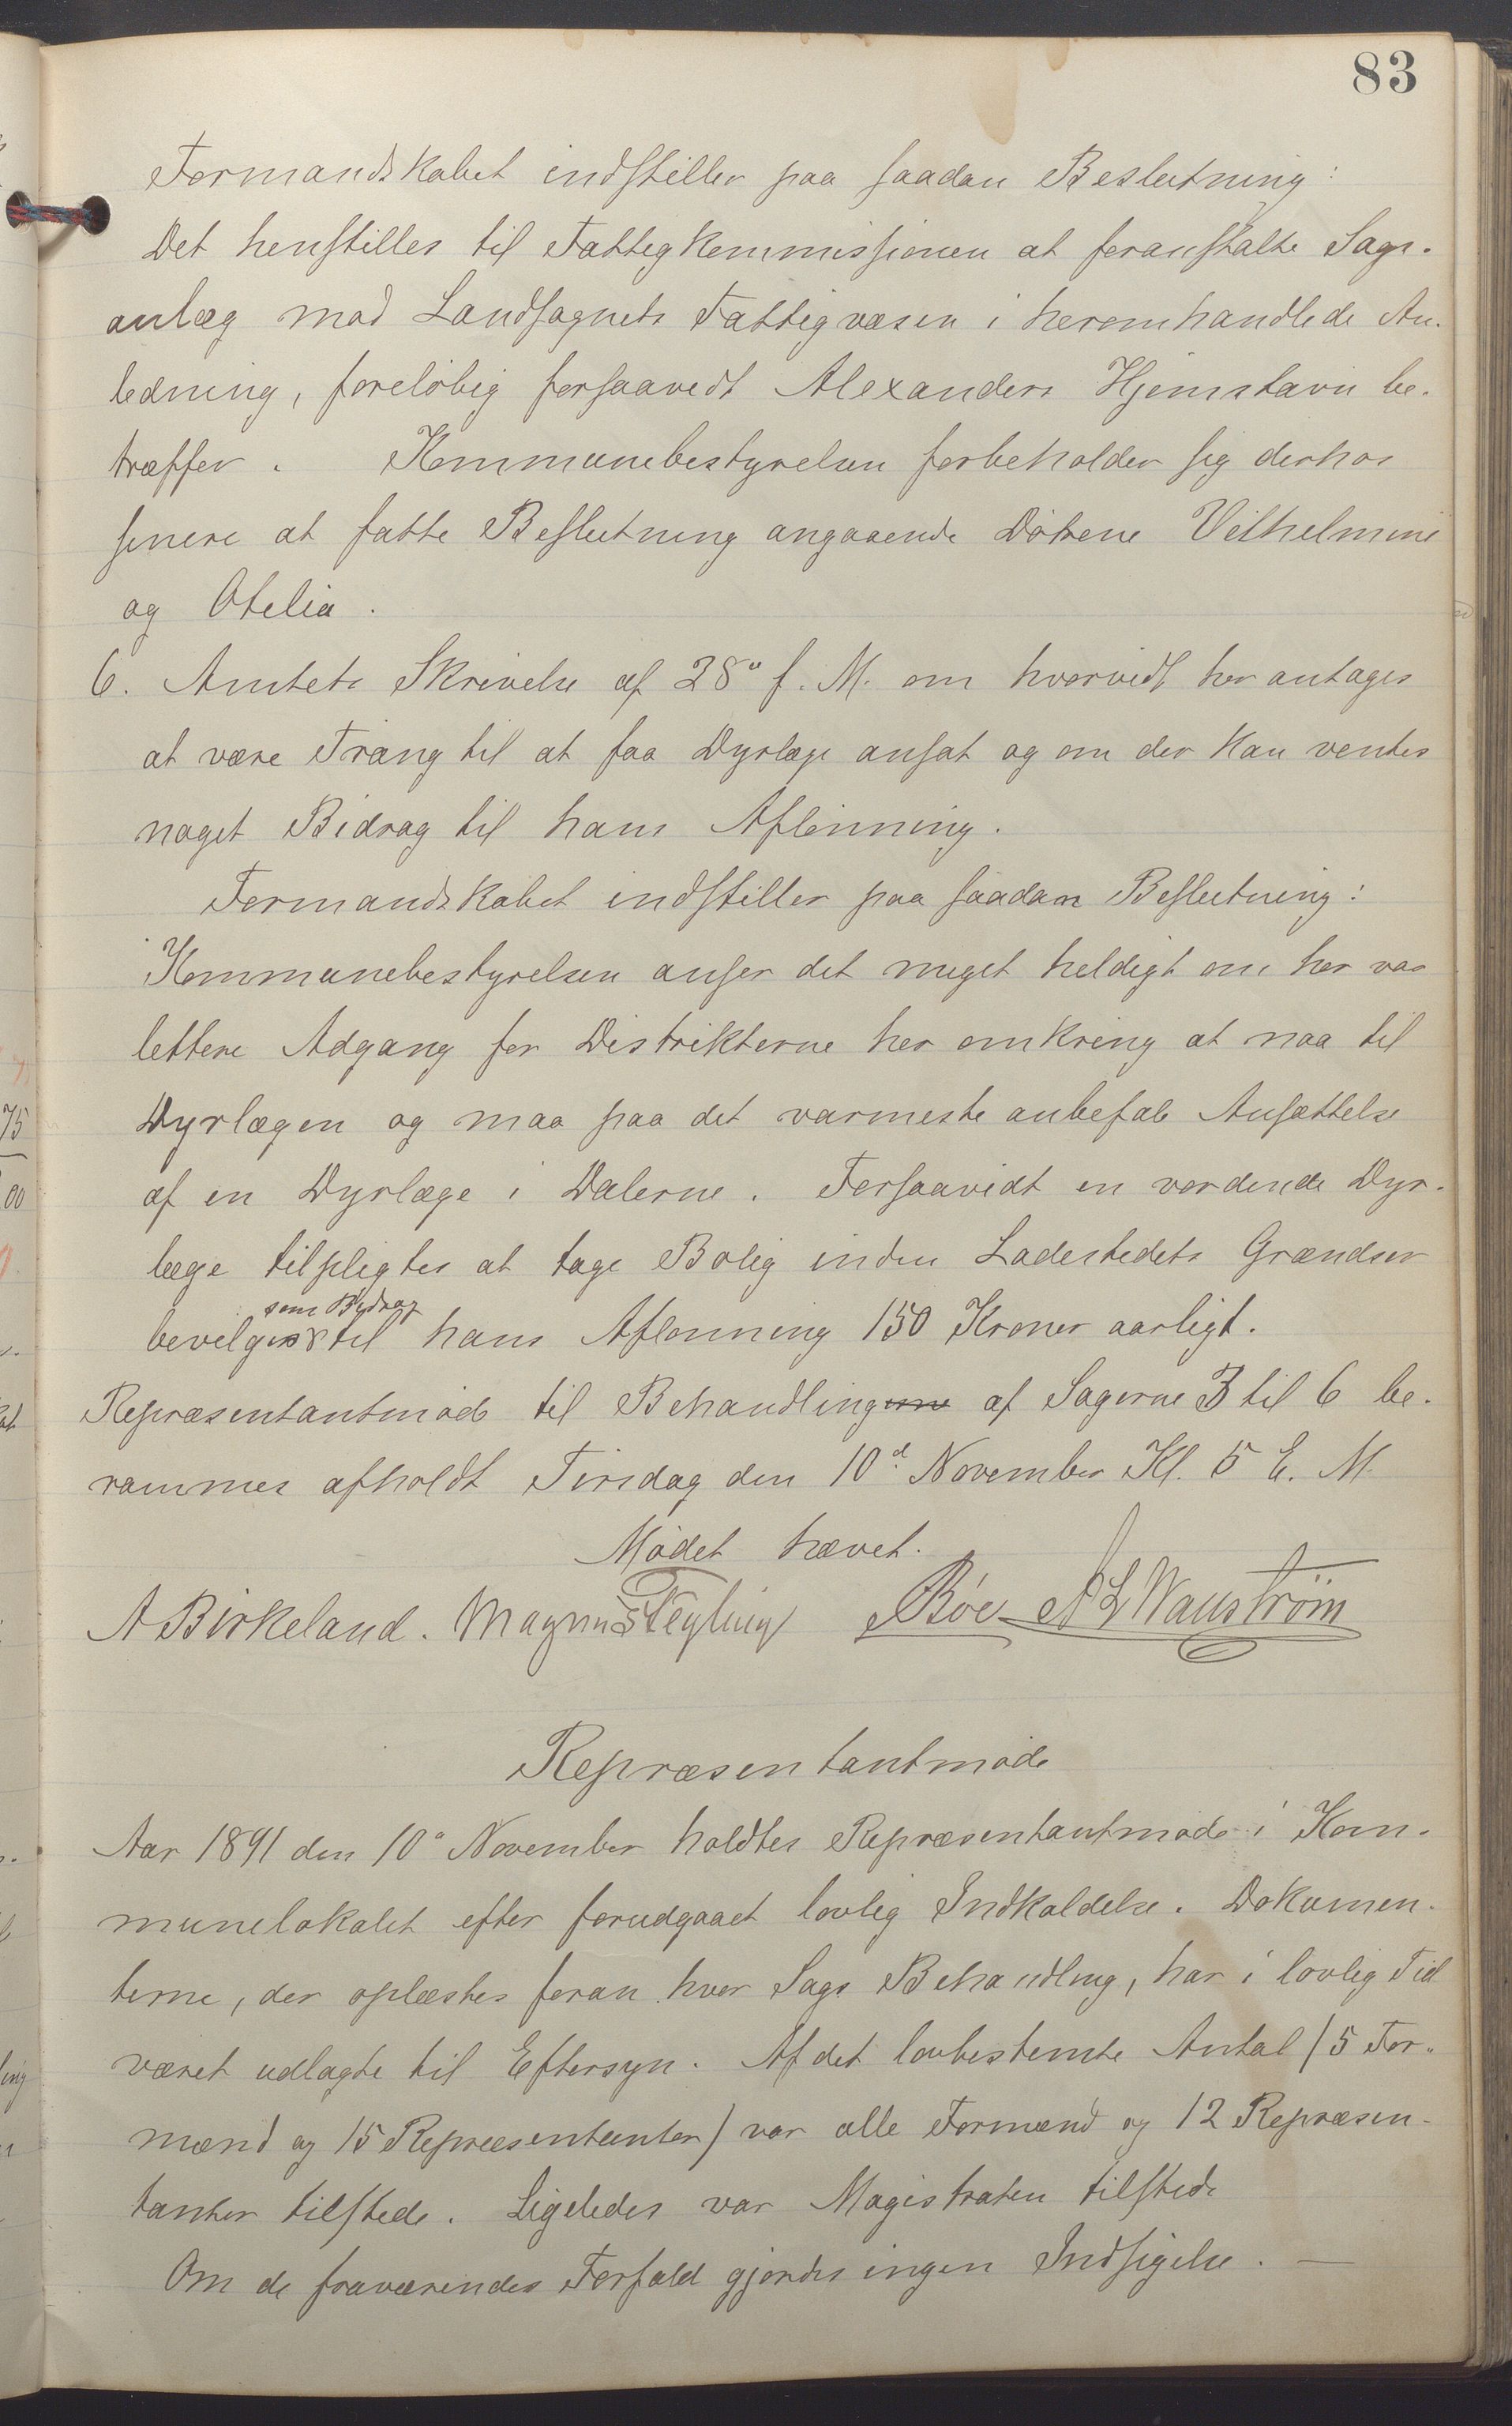 83
Formandskabet indstiller paa saadan Beslutning:
Det henstilles til Fattigkommissionen at foranstalte Sags-
anlæg mod Landsognets Fattigvæsen i heromhandlede An-
ledning, foreløbig forsaavidt Alexanders Hjemstavn be-
træffer. Kommunebestyrelsen forbeholder sig derhos
senere at fatte Beslutning angaaende Døtrene Vilhelmine
og Otelia.
6. Amtets Skrivelse af 28° f. M. om hvorvidt her antages
at være Trang til at faa Dyrlæge ansat og om der kan ventes
noget Bidrag til hans Aflønning.
Formandskabet indstiller paa saadan Beslutning:
Kommunebestyrelsen anser det meget heldigt om her var
lettere Adgang for Distrikterne her omkring at naa til
Dyrlægen og maa paa det varmeste anbefale Ansættelse
af en Dyrlæge i Dalerne. Forsaavidt en vordende Dyr-
læge tilpligtes at tage Bolig inden Ladestedets Grændser
som Bidrag
bevilges til hans Aflønning 150 Kroner aarligt.
Repræsentantmøde til Behandling af Sagerne 3 til 6 be-
rammes afholdt Tirsdag den 10d November Kl. 5 E. M.
Mødet hævet.
A Birkeland. Magnus Feyling Bøe A L Wanström
Repræsentantmøde
Aar 1891 den 10° November holdtes Repræsentantmøde i Kom-
munelokalet efter forudgaaet lovlig Indkaldelse. Dokumen-
terne, der oplæstes foran hver Sags Behandling, har i lovlig Tid
været udlagte til Eftersyn. Af det lovbestemte Antal /5 For-
mænd og 15 Repræsentanter/ var alle Formænd og 12 Repræsen-
tanter tilstede. Ligeledes var Magistraten tilstede
Om de fraværendes Forfald gjordes ingen Indsigelse. —